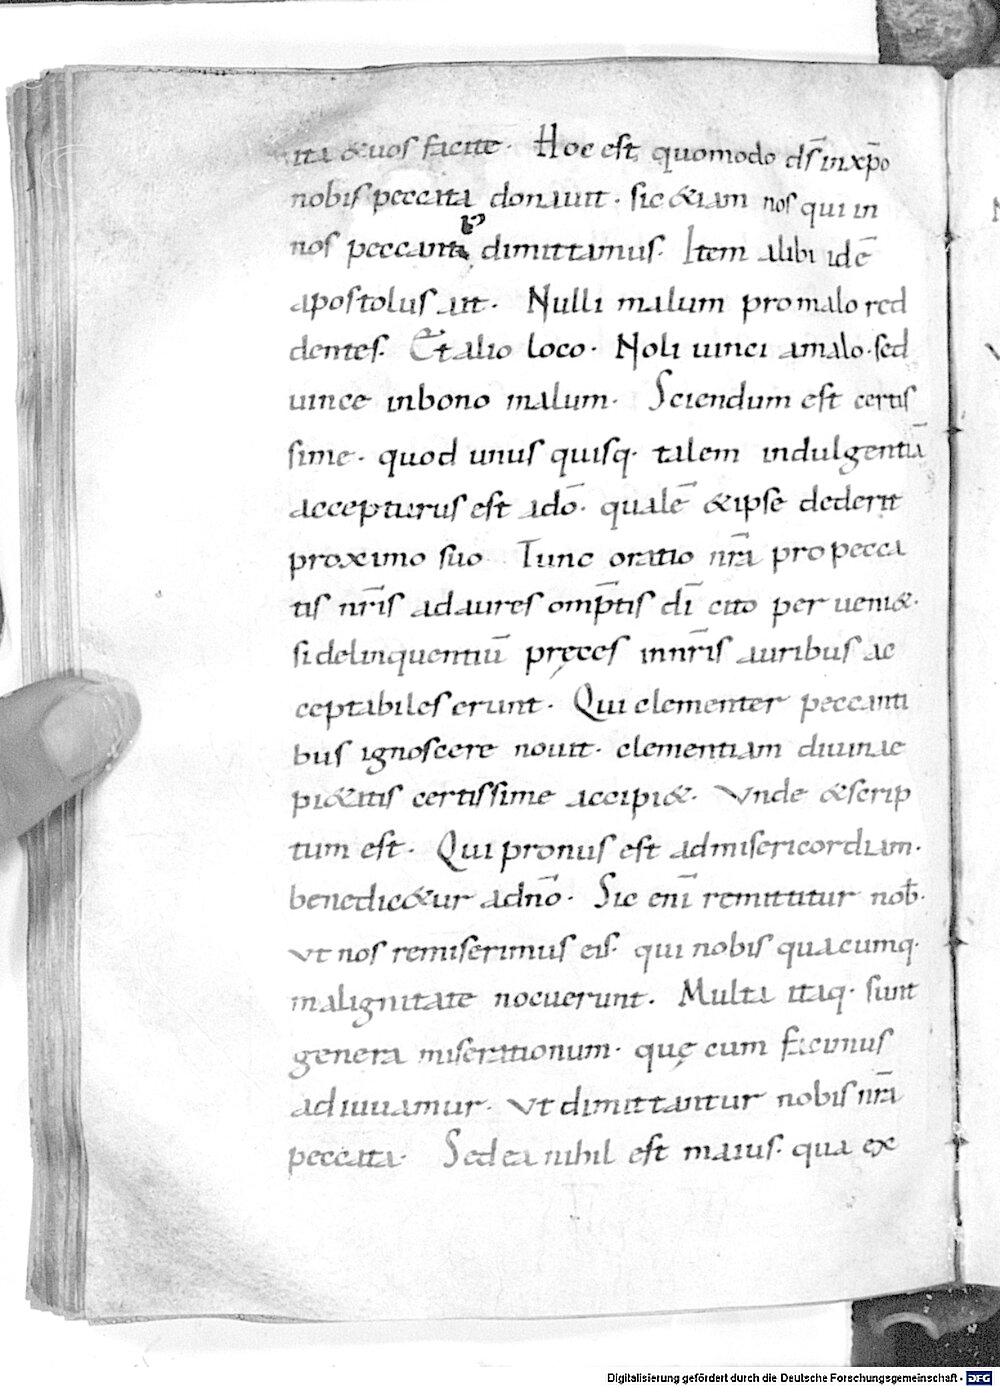 ita &uos facite. Hoc est quomodo d̅s̅ inxp̅o
nobis peccata donauit. sic &iam nos qui in
nos peccantib; dimittamus. Item alibi ide̅
apostolus ait. Nulli malum pro malo red
dentes. Et alio loco. Noli uinci amalo. sed
uince inbono malum. Sciendum est certis
sime. quod unus quisq. talem indulgentia̅
accepturus est ado̅. quale̅ &ipse dederit
proximo suo Tunc oratio nr̅a pro pecca
tis nr̅is adaures omp̅tis di̅ cito per ueni&.
si delinquentiu̅ pręces innr̅is auribus ac
ceptabiles erunt. Qui clementer peccanti
bus ignoscere nouit. clementiam diuinae
pi&atis certissime accipi&. Vnde &scrip
tum est. Qui pronus est admisericordiam.
benedic&ur adn̅o. Sic eni̅ remittitur nob̅.
Vt nos remiserimus eis. qui nobis quacumq.
malignitate nocuerunt. Multa itaq. sunt
genera miserationum. quę cum facimus
adiuuamur. Vt dimittantur nobis nr̅a
peccata. Sed ea nihil est maius. qua ex
Digitalisierung gefördert durch die Deutsche Forschungsgemeinschaft - DFG